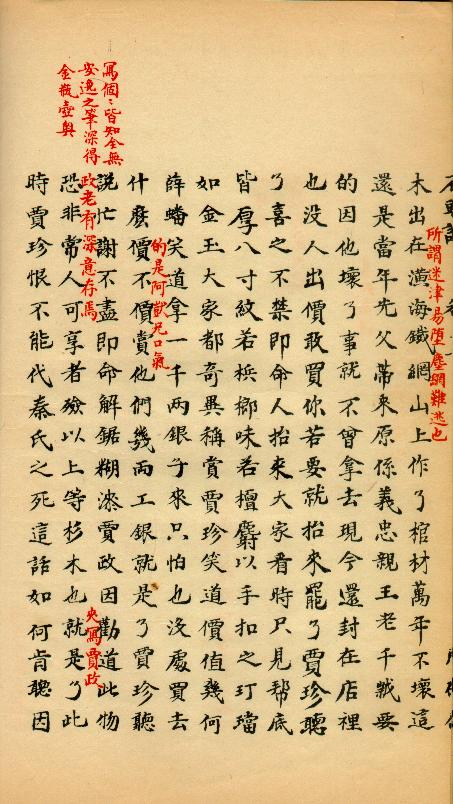 木出在潢海鐵網山上作了棺材萬年不壞這
所謂迷津易墮塵網難逃也
還是當年先父帶來原係義忠親王老千歲要
的因他壞了事就不曾拿去現今還封在店裡
也没人出價敢買你若要就抬來罷了賈珍聽
了喜之不禁即命人抬來大家看時只見幇底
皆厚八寸紋若梹榔味若檀麝以手扣之玎璫
如金玉大家都奇異稱賞賈珍笑道價值幾何
薛蟠笑道拿一千兩銀子來只怕也没處買去
的是阿獃兄口氣
什麽價不價賞他們幾兩工銀就是了賈珍聽
說忙謝不盡即命解鋸糊漆賈政因勸道此物
寫個個皆知全無
安逸之筆深得
金瓶壺奥
政老有深意存焉
夾寫賈政
恐非常人可享者殮以上等杉木也就是了此
時賈珍恨不能代秦氏之死這話如何肯聽因